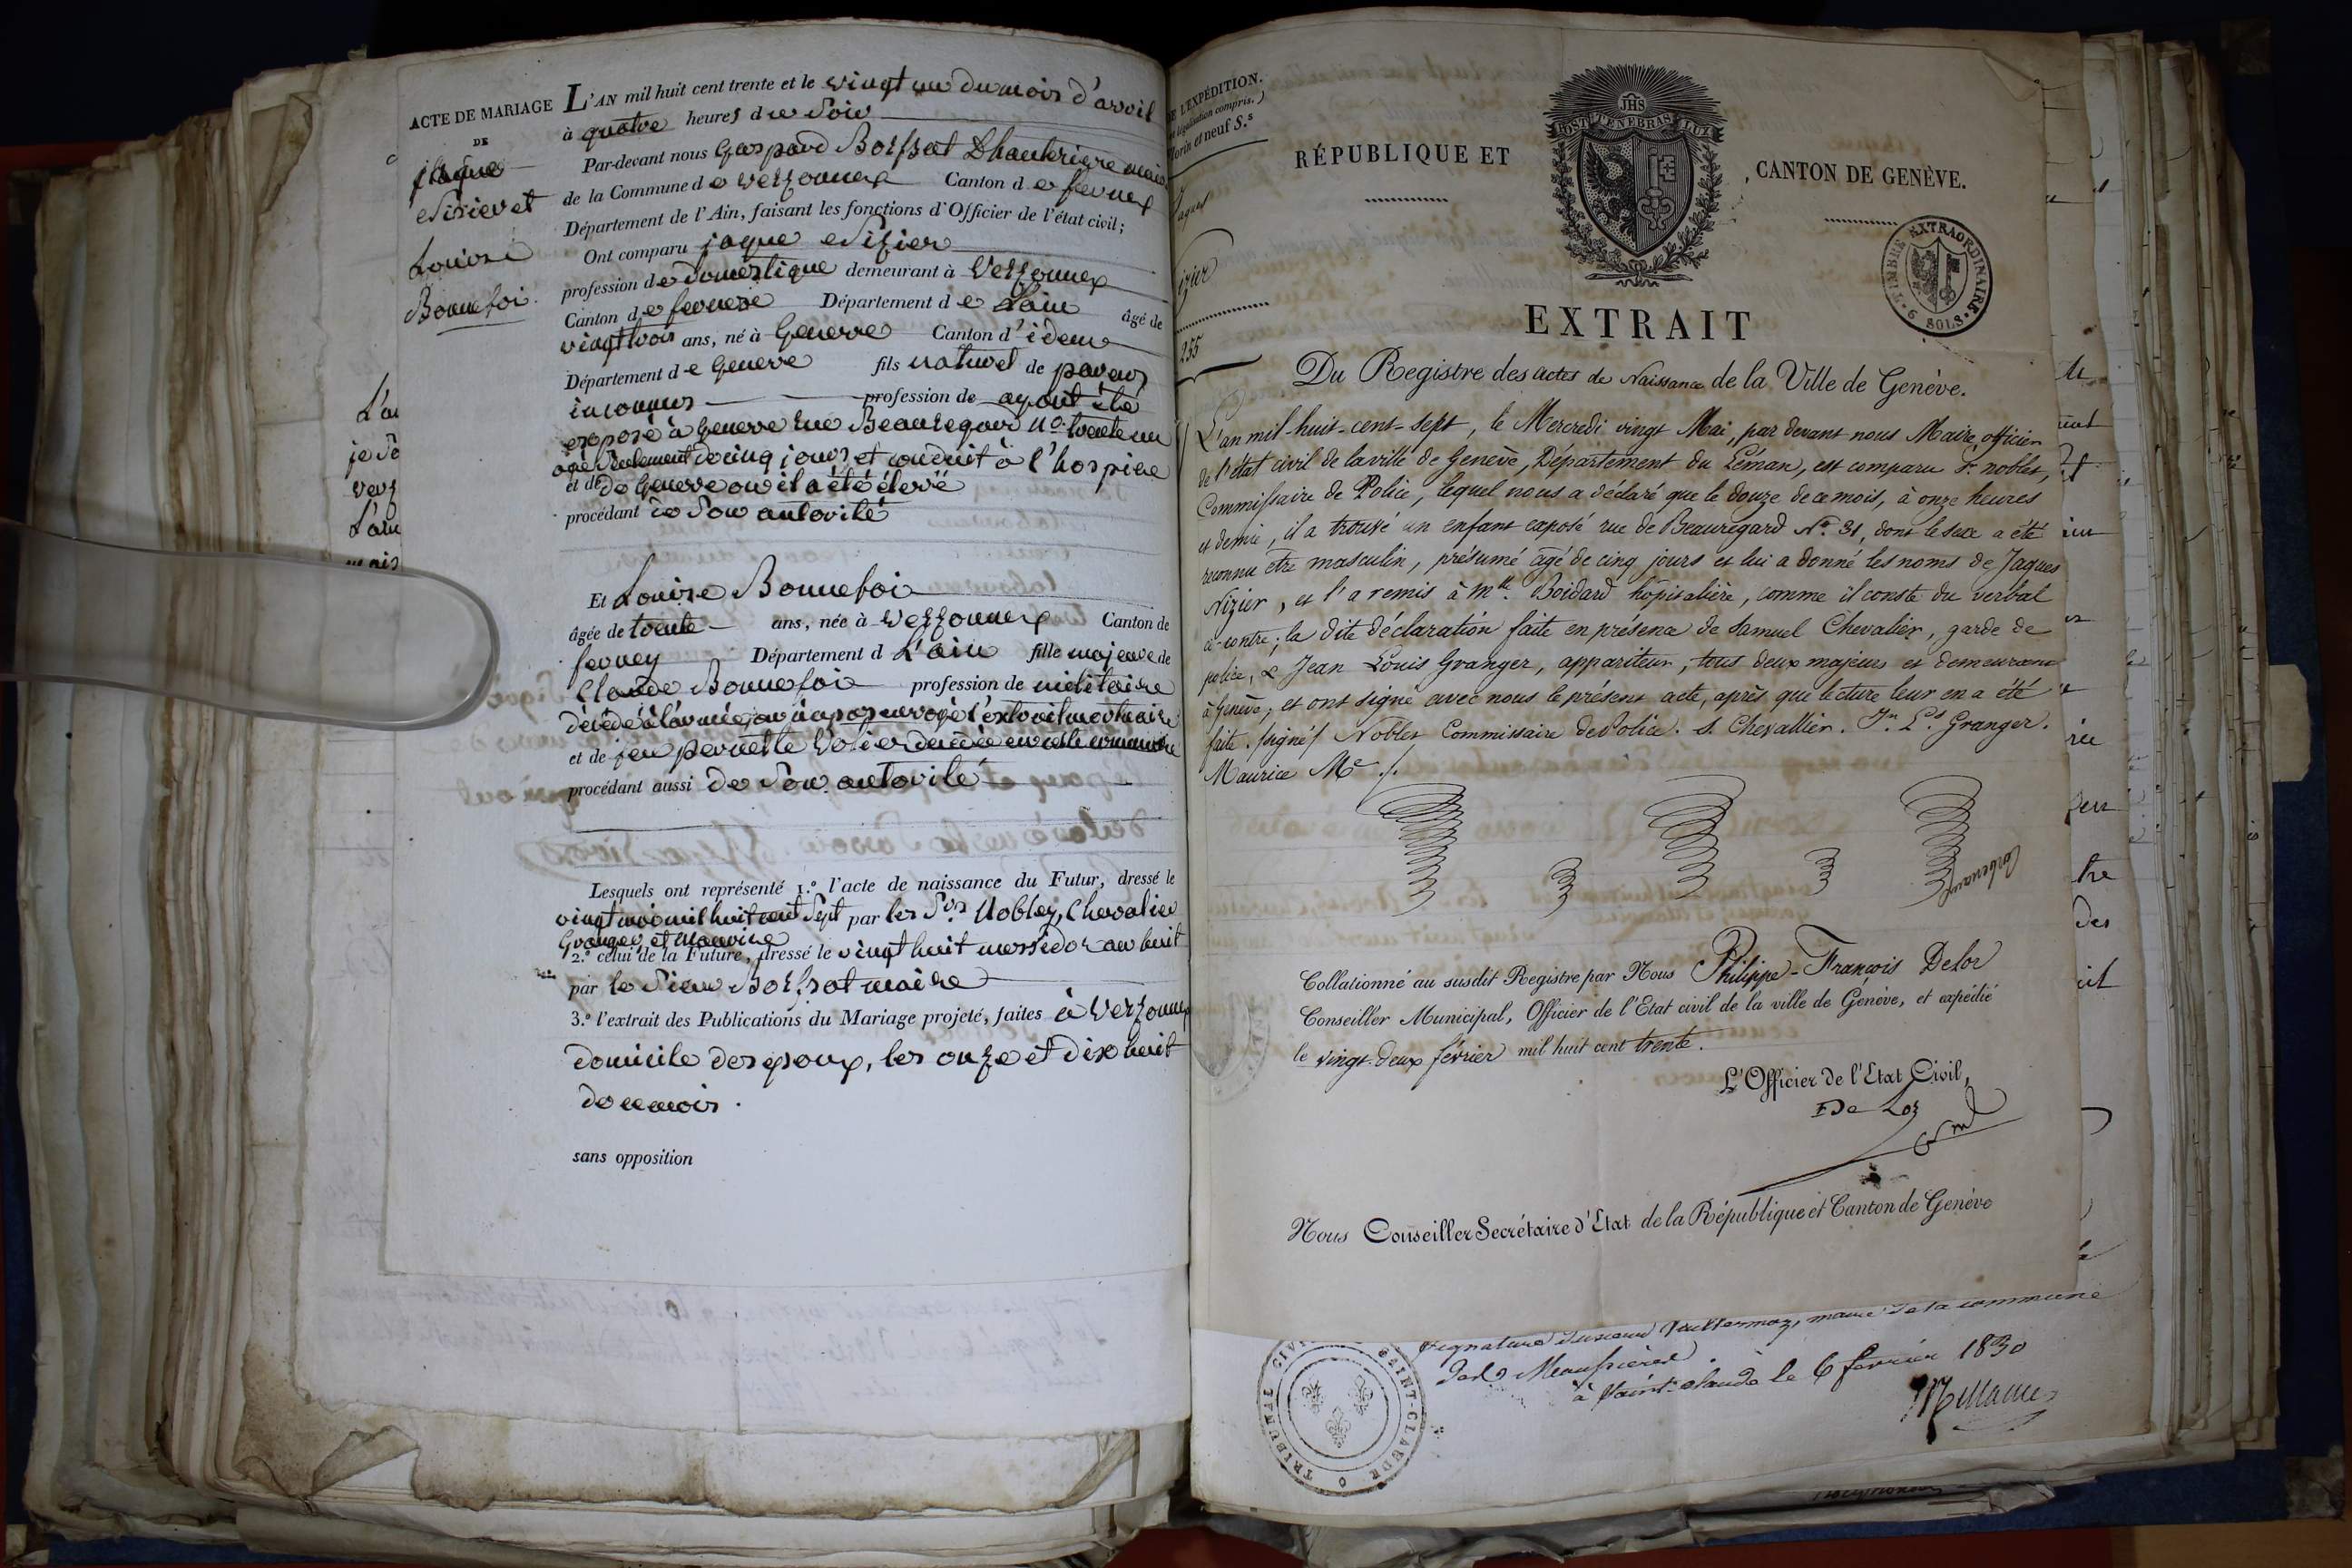 ACTE DE MARIAGE
DE
jaque
Nizier et
Louise
Bonnefoi
L'AN mil huit cent trente et le vingt un du mois d'avril
à quatre heures du Soir
Par-devant nous Gaspard Boissat Dhauterive maire
de la Commune de Versonnex Canton de ferney
Département de l'Ain, faisant les fonctions d'Officier de l'état civil;
Ont comparu jaque Nizier
profession de domestique demeurant à Versonnex
Canton de fernex Département de Lain âgé de
vingt trois ans, né à Geneve Canton d'idem
Département de Geneve fils naturel de parens
inconnus profession de ayant été
exposé à Geneve rue Beauregard No. trente un
agé Seulement de cinq jours et conduit à l'hospice
et de de Geneve ou il a été élevé
procédant de Son autorité
Et Louise Bonnefoi
âgée de trente ans, née à Versonnex Canton de
ferney Département d L'ain fille majeure de
Claude Bonnefoi profession de militaire
décédé à l'armée, on n'a pas envoyé l'extrait mortuaire
et de feu pernette décédée en cette commune
procédant aussi de Son autorité
Lesquels ont représenté 1.º l'acte de naissance du Futur, dressé le
vingt mai mil huit cent Sept par les Srs Nobley, Chevalier
Granger et Maurice
2.º celui de la Future, dressé le vingt huit messidor an huit
par le Sieur Boissat maire
3.º l'extrait des Publications du Mariage projeté, faites à Versonnex
domicile des epoux, les onze et dix huit
de ce mois.
sans opposition
L'EXPÉDITION.
légalisation compris.)
florin et neuf S.s
Jaques
Nizier
255
RÉPUBLIQUE ET CANTON DE GENÈVE.
JHS
POST TENEBRAS LUX
TIMBRE EXTRAORDINAIRE
6 SOLS
EXTRAIT
Du Registre des actes de Naissance de la Ville de Genève.
L'an mil-huit-cent-sept, le Mercredi vingt Mai, par devant nous Maire, officier
de l'état civil de la ville de Genève, Département du Léman, est comparu Sr. nobley,
Commissaire de Police, lequel nous a déclaré que le douze de ce mois, à onze heures
et demie, il a trouvé un enfant exposé rue de Beauregard No. 31, dont le sexe a été
reconnu être masculin, présumé âgé de cinq jours et lui a donné les noms de Jaques
Nizier, et l'a remis à Mlle. Boidard hôpitalière, comme il conste du verbal
ci-contre; la dite déclaration faite en présence de Samuel Chevalier, garde de
police, & Jean Louis Granger, appariteur, tous deux majeurs et demeurans
à Genève; et ont signé avec nous le présent acte, après que lecture leur en a été
faite. signé/ Nobley Commissaire de Police. S. Chevallier. Jn. Ls. Granger.
Maurice Me ./.
Collationné au susdit Registre par Nous Philippe-François Delor
Conseiller Municipal, Officier de l'Etat civil de la ville de Genève, et expédié
le vingt-deux février mil huit cent trente.
L'Officier de l'Etat Civil,
De Lor
Nous Conseiller Secrétaire d'Etat de la République et Canton de Genève
signature du sieur maire de la commune
à Saint-Claude le 6 fevrier 1830
TRIBUNAL CIVIL SAINT-CLAUDE